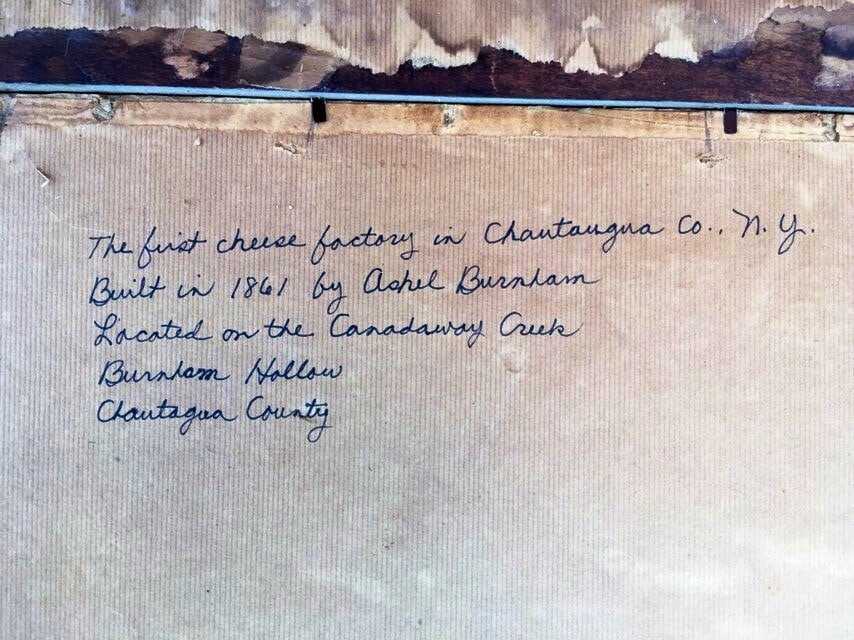 The first cheese factory in Chautaugua Co., N.Y.
Built in 1861 by Ashel Burnham
Located on the Canadaway Creek
Burnham Hollow
Chautagua County